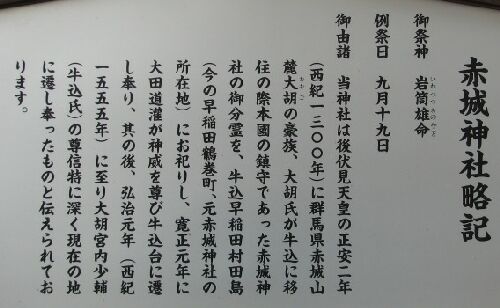 赤城神社略記
御祭神 岩筒雄命
例祭日 九月十九日
御由諸 当神社は後伏見天皇の正安二年
(西紀一三〇〇年)に群馬県赤城山
麓大胡の豪族、大胡氏が牛込に移
住の際本國の鎮守であった赤城神
社の御分霊を、牛込早稲田村田島
(今の早稲田鶴巻町、元赤城神社の
所在地)にお祀りし、寛正元年に
大田道灌が神威を尊び牛込台に遷
し奉り、其の後、弘治元年(西紀
一五五五年)に至り大胡宮内少輔
(牛込氏)の尊信特に深く現在の地
に遷し奉ったものと伝えられてお
ります。